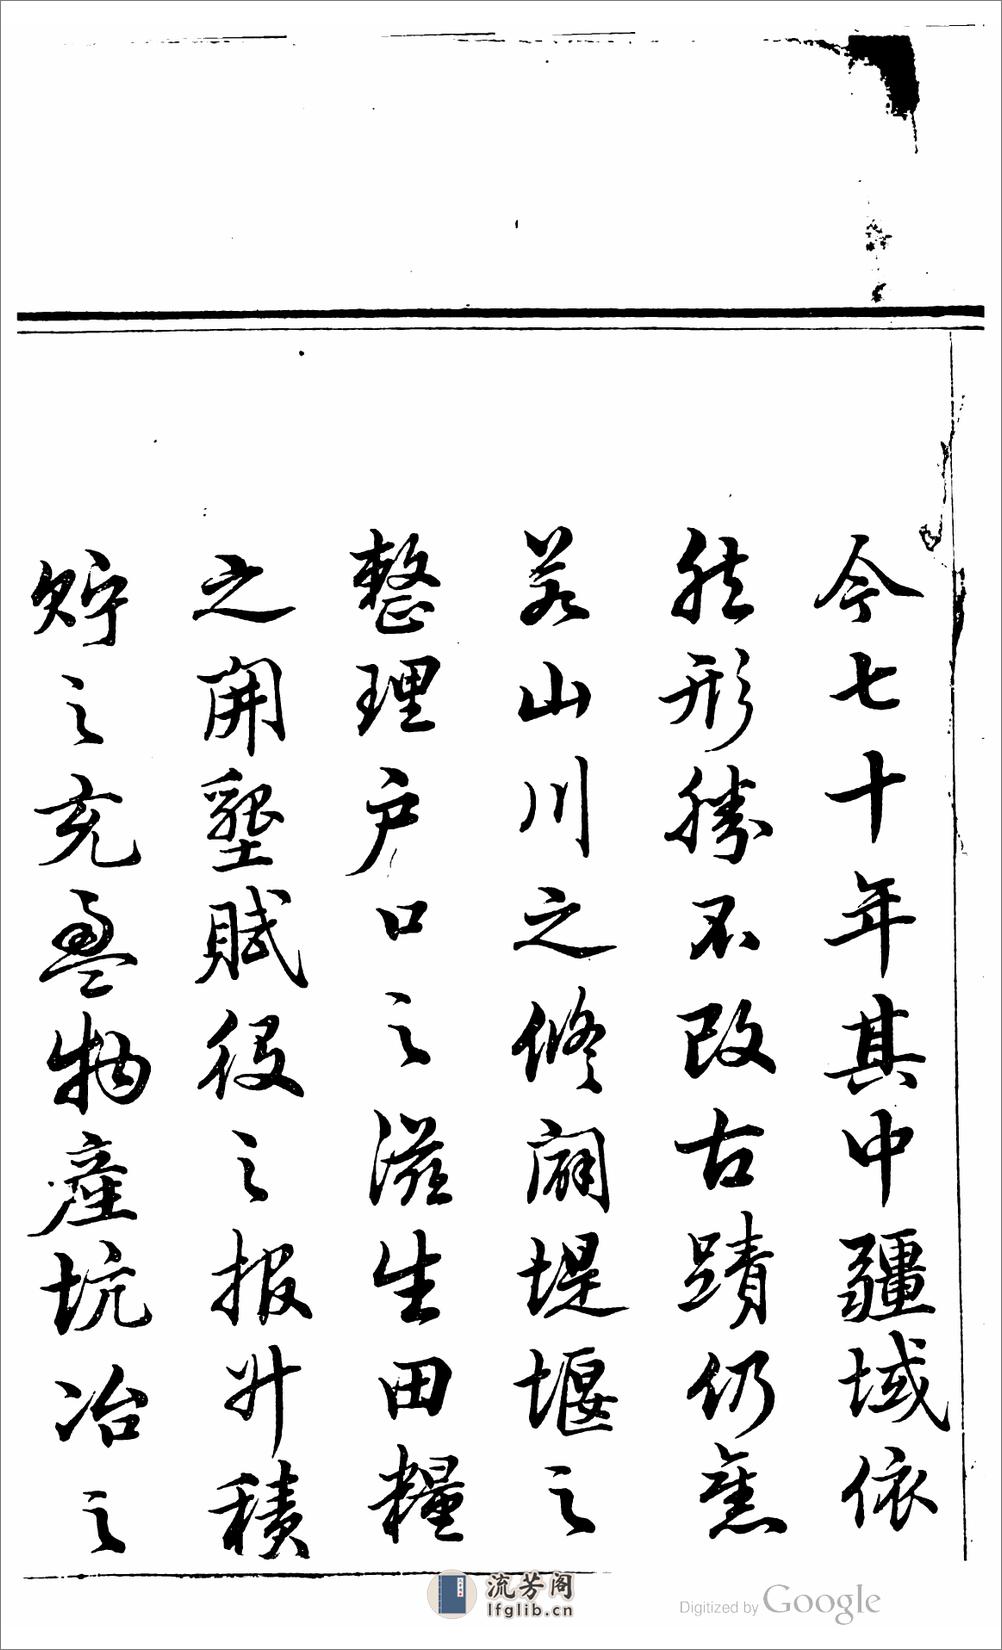 今七十年其中疆域依
然形勝不改古蹟仍舊
若山川之修闢堤堰之
整理户口之滋生田糧
之開墾賦役之報升積
貯之充盈物產坑冶之
流芳阁
lfglib.cn
Digitized by Google